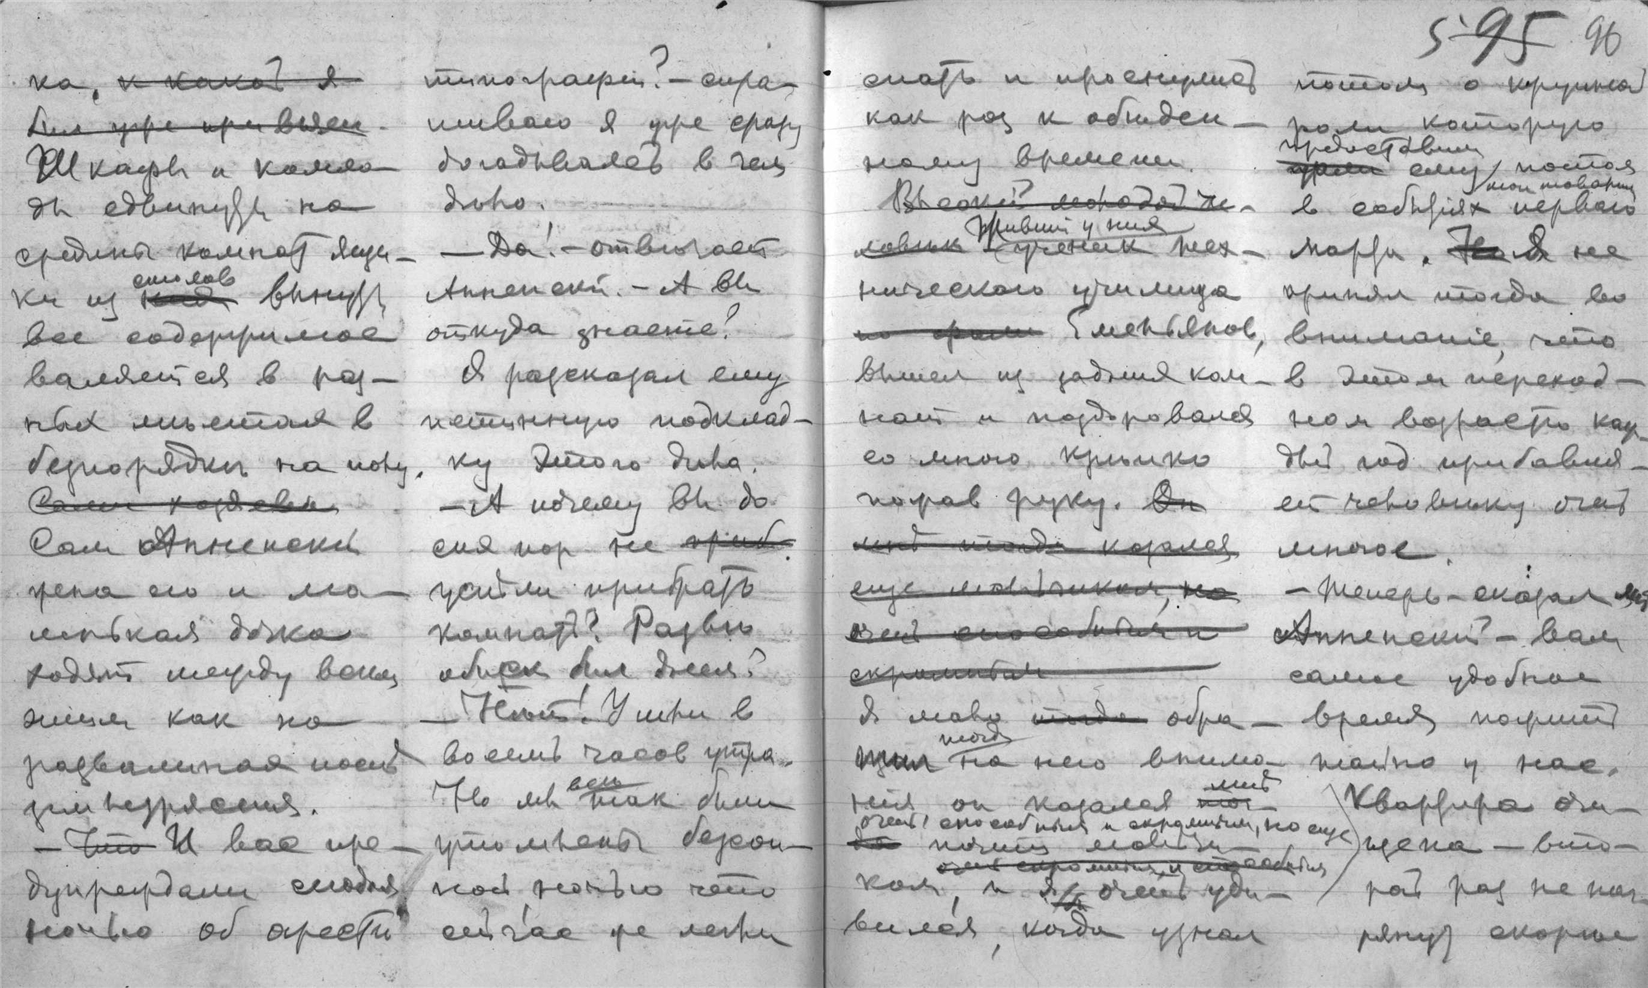 ка, к какой я
был уже привычен.
Шкафы и комо-
ды сдвинуты на
средины комнат ящи-
столов
ки из вынуты
все содержимое
валяется в раз-
ных местах в
безпорядке на полу.
Сами хозяева
Сам Анненский
жена его и ма-
ленькая дочка
ходят между всем
этим как на
развалинах после
землетрясения.
— Что И вас пре-
дупреждали сегодня
ночью об аресте
типографии? — спра-
шиваю я уже сразу
догадываясь в чем
дело.
— Да! — отвечает
Анненский. — А вы
откуда знаете?
Я разсказал ему
истинную подклад-
ку этого дела.
— А почему вы до
сих пор не приб
успели прибрать
комнаты? Разве
обыск был днем?
— Нет! Ушли в
восемь часов утра.
Но мы так были
утомлены безсон-
ной ночью что
сейчас же легли
5 95 96
спать и проснулись
как раз к обеден-
ному времени.
Высокий молодой че-
живший у них
ловек ученик тех-
нического училища
Емельянов,
вышел из задних ком-
нат и поздоровался
со мною крепко
пожав руку. Он
мне тогда казался
еще мальчиком, но
очень способным и
скромным
Я мало тогда обра-
тогда
щал на него внима-
мне
ния он казался
очень способным и скромным, но еще
почти мальчи-
очень скромным и способным
ком, и я очень уди-
вился, когда узнал
потом о крупной
роли которую
предоставили
ему потом
товарищи
в событиях первого
марта. Но Я не
принял тогда во
внимание, что
в этом переход-
ном возрасте каж-
дый год прибавля-
ет человеку очень
многое.
— Теперь — сказал мне
Анненский — вам
самое удобное
время пожить
тайно у нас.
Квартира очи-
щена — вто-
рой раз не наг-
рянут скорее